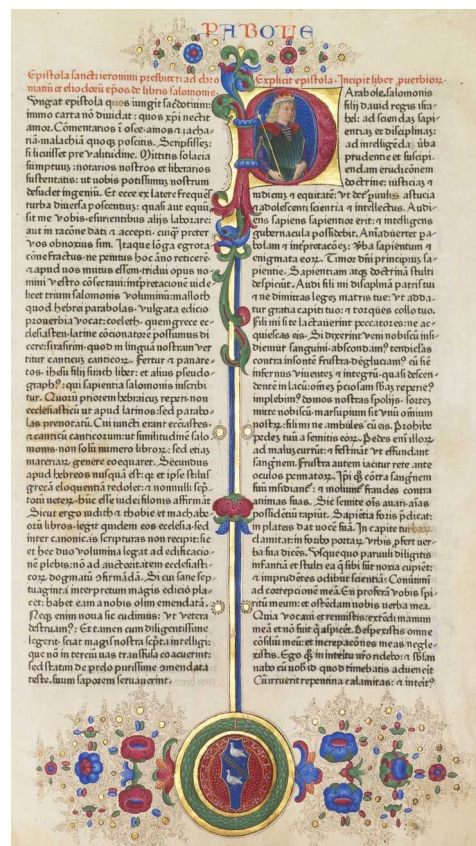 PABOLE
Epistola sancti ieronimi presbiteri ad chro
matiū et eliodorū epos de libris salomonis
Iungat epistola quos iungit sacerdotium:
immo carta nō dividat: quos xpi nectit
amor. Cōmentarios ī osee. amos ⁊ zacha-
riā malachiā quoqꝫ poscitis. Scripsissem:
si licuisset pre valitudine. Mittitis solacia
sumptuum: notarios nostros et librarios
sustentatis: ut vobis potissimū nostrum
desudet ingeniū. Et ecce ex latere frequēs
turba diversa poscentium: quasi aut equū
sit me vobis esurientibus alijs laborare:
aut in racōne dati ⁊ accepti. cuiqꝫ preter
vos obnoxius sim. Itaqꝫ lōga egrotati
cōne fractus ne penitus hoc āno reticerē
⁊ apud vos mutus essem. tridui opus no
mini vestro cōsecravi: interpretacōnē vide
licet trium salomonis voluminū: masloth
quod hebrei parabolas. vulgata edicio
proverbia vocat: coeleth. quem grece ec-
clesiasten. latine cōcionatorē possumus di
cere: sirasirim. quod in linguā nostram ver
titur canticū canticorū. Fertur ⁊ panare-
tos. ihesu filij sirach liber: et alius pseudo-
graphꝰ: qui sapientia salomonis inscribi
tur. Quorū priorem hebraicū reperi. non
ecclesiasticū ut apud latinos: sed parabo-
las prenotatū. Cui iuncti erant ecclesiastes.
⁊ canticū canticorum: ut similitudinē salo
monis. non solū numero librorꝫ: sed etiā
materiarꝫ genere coequaret. Secundus
apud hebreos nusquā est: qꝫ et ipse stilus
grecā eloquentiā redolet: ⁊ nonnulli scrip-
torū veterꝫ hūc esse iudei filonis affirmāt
Sicut ergo iudith ⁊ thobie et machabe-
orū libros. legit quidem eos ecclesia. sed
inter canonicas scripturas non recipit: sic
et hec duo volumina legat ad edificacio-
nē plebis: nō ad auctoritatem ecclesiasti-
corꝫ dogmatū cōfirmādā. Si cui sane sep-
tuaginta interpretum magis edicio pla
cet: habet eam a nobis olim emendatā.
Neqꝫ enim nova sic cudimus: ut vetera
destruamꝰ. Et tamen cum diligentissime
legerit. sciat magis nostra scripta intelligi:
que nō in terciū vas transfusa coacuerint:
sed statim de prelo purissime cōmendata
teste. suum saporem servaverint.
Explicit epistola. Incipit liber proverbiorꝫ
Parabole salomonis
filij david regis isra
hel: ad sciendā sapi
entiā et disciplinā:
ad intelligēda verba
prudentie et suscipi-
endam erudicōnem
doctrine: iusticiā ⁊
iudiciū ⁊ equitatē: ut det parvulis astucia
⁊ adolescenti scientia ⁊ intellectus. Audi-
ens sapiens sapientior erit: ⁊ intelligens
gubernacula possidebit. Animadvertet pa
bolam ⁊ interpretacōeꝫ: verba sapientum ⁊
enigmata eorꝫ. Timor dni principiū sa-
pientie. Sapientiam atqꝫ doctrinā stulti
despiciūt. Audi fili mi disciplinā patris tui
⁊ ne dimittas legeꝫ matris tue: ut adda-
tur gratia capiti tuo: ⁊ torques collo tuo.
Fili mi si te lactaverint peccatores: ne ac-
quiescas eis. Si dixerint veni nobiscū insi-
diemur sanguini. abscondamꝰ tendiclas
contra insontē frustra. deglutiamꝰ eū sic
infernus viventeꝫ ⁊ integrū. quasi descen-
dentē in lacū: omneꝫ preciosam subam reperieꝰ
implebimꝰ domos nostras spolijs. sortem
mitte nobiscū. marsupium sit unū omnium
nostrꝫ: fili mi ne ambules cū eis. Prohibe
pedeꝫ tuū a semitis eorꝫ. Pedes enī illorꝫ
ad malū currūt: ⁊ festināt ut effundant
sanguinem. Frustra autem iacitur rete ante
oculos pennatorꝫ. Ipi quoqꝫ cōtra sanguinem
suū insidiantꝰ: ⁊ moliuntꝰ fraudes contra
animas suas. Sic semite oīs avari: aīas
possidētiū rapiūt. Sapiētia foris predicat:
in plateis dat vocē suā. In capite turbarꝫ
clamitat: in foribꝰ portarꝫ urbis. profert ver-
ba sua dicēs. Usquequo parvuli diligitis
infantiā et stulti ea que sibi sūt noxia cupiēt:
⁊ imprudētes odibūt scientiā: Convertimī
ad correpcionē meā. En proferā vobis spi
ritū meum: et ostēdam vobis verba mea.
Quia vocavi et rennuistis: extēdi manum
meā et nō fuit qui aspiceret. Despexistis omne
cōsiliū meū: et increpacōnes meas negle-
xistis. Ego quoqꝫ in interitu vestro ridebo: ⁊ subsan
nabo cū vobis id quod timebatis advenerit
Cū irruerit repentina calamitas: ⁊ interitꝰ